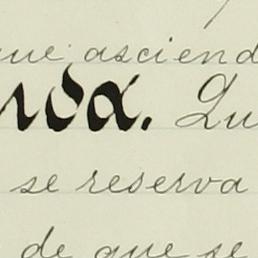 que asciend
Qu
se reserva
de que se